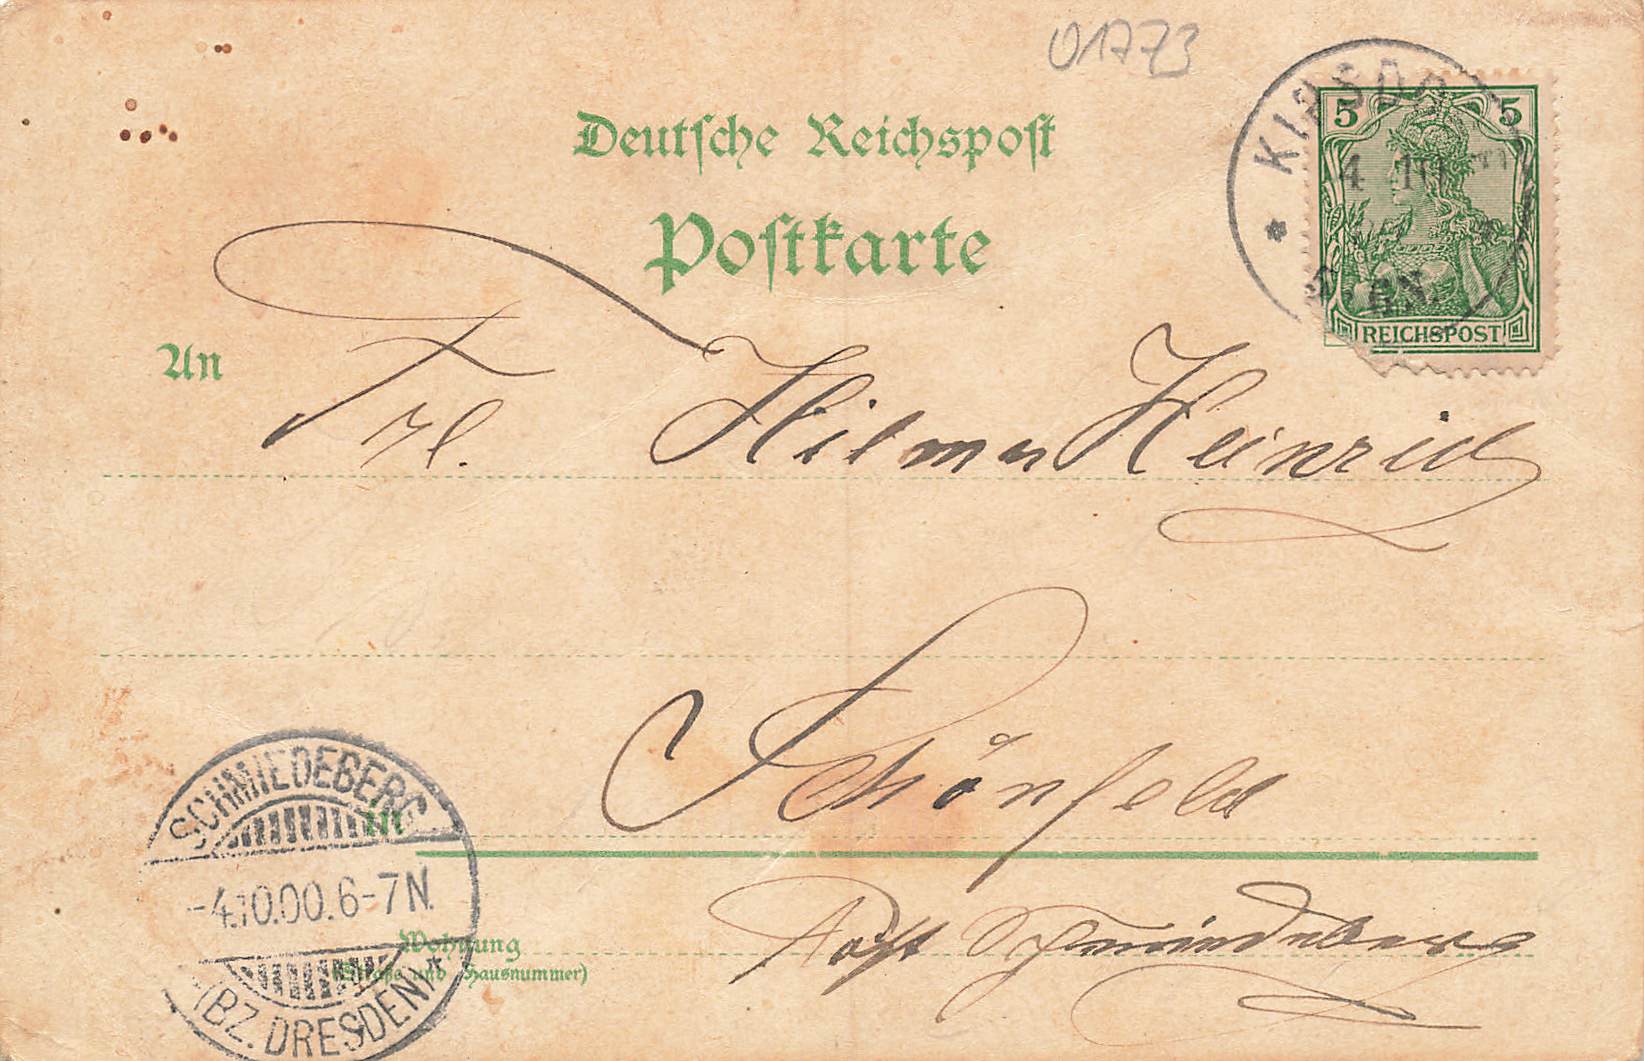 01773
Deutsche Reichspost
Postkarte
5 5
4 10
REICHSPOST
An
Frl. Hilma Heinrich
Schönfeld
in
SCHMIEDEBERG
-4.10.00.6-7N.
(BZ. DRESDEN) *
Post Schmiedeberg
Wohnung
(Straße und Hausnummer)